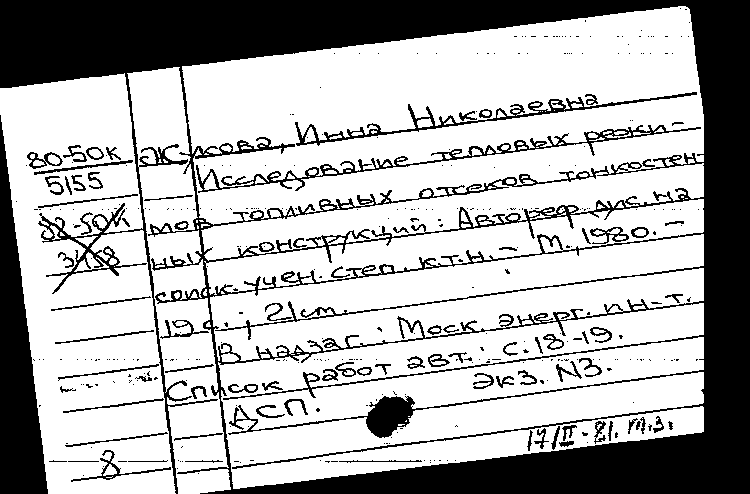 80-50К
5155
82-50К
3458
Жукова, Инна Николаевна
Исследование тепловых режи-
мов топливных отсеков тонкостен
ных конструкций: Автореф. дис. на
соиск. учен. степ. к.т.н. – М., 1980. –
19 с.; 21 см.
В надзаг.: Моск. энерг. ин-т.
Список работ авт.: с. 18-19.
ДСП. Экз. N3.
17/II-81. м.з.
8